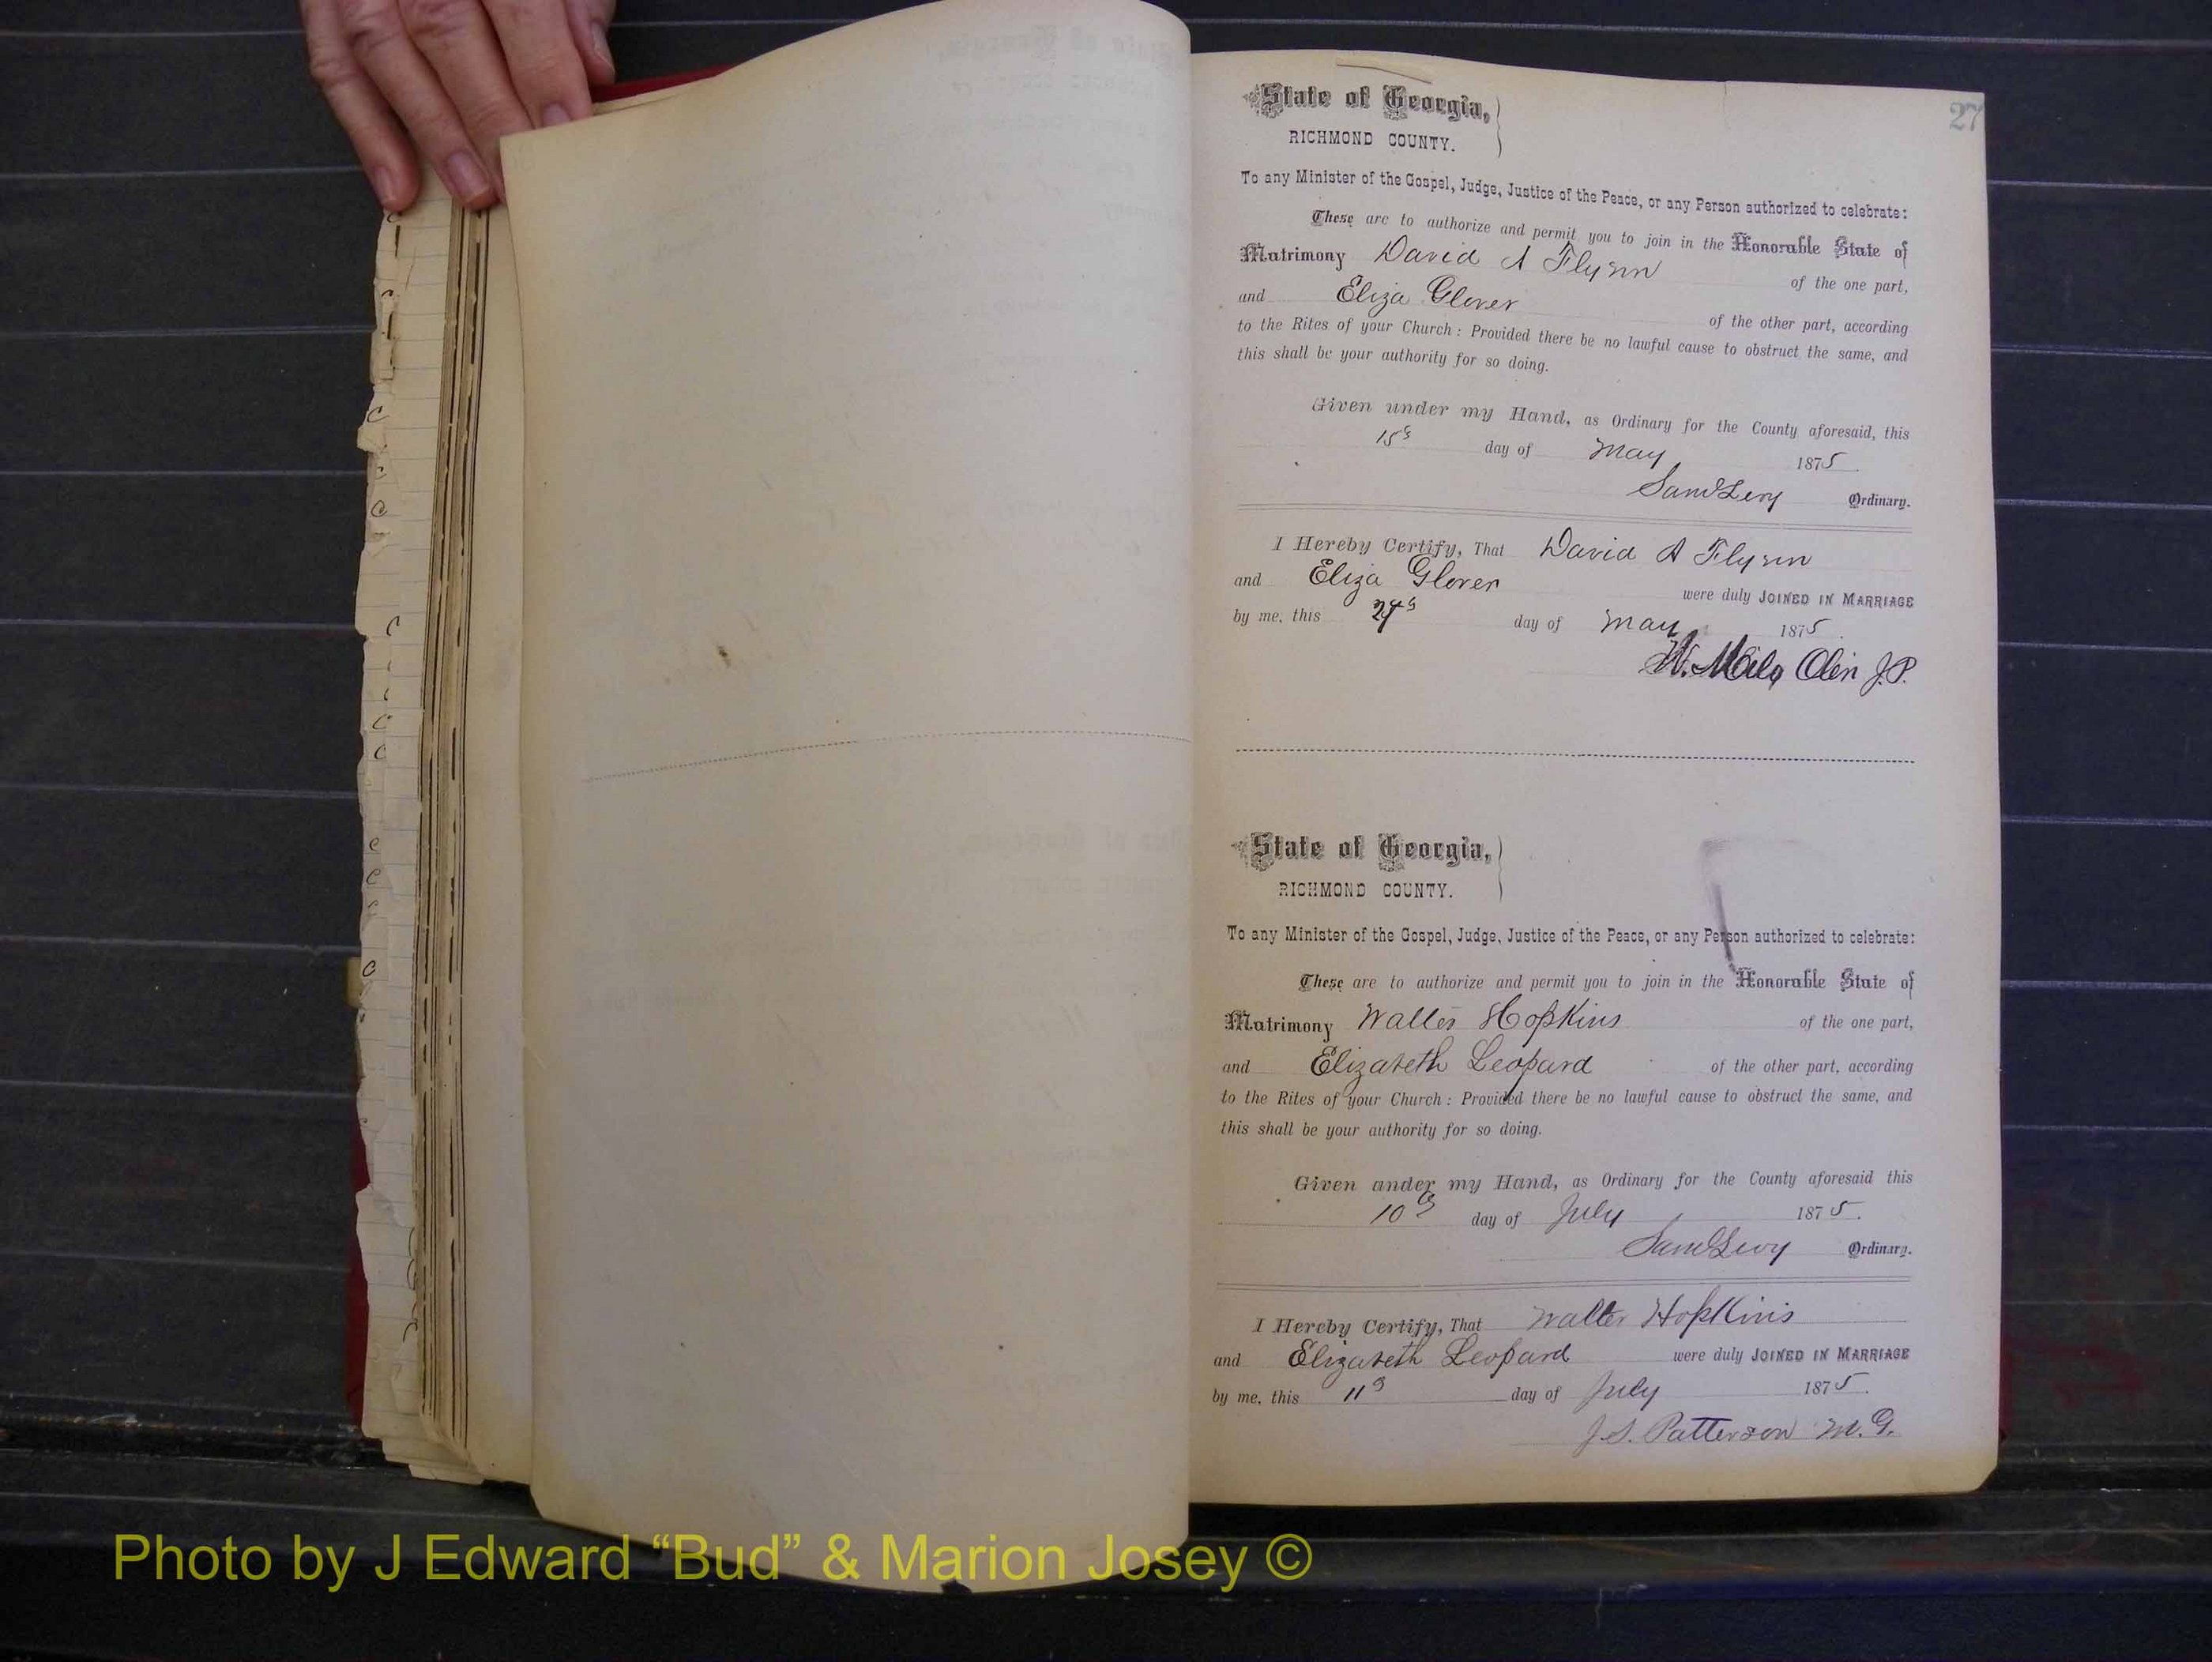 27
State of Georgia,
RICHMOND COUNTY.
To any Minister of the Gospel, Judge, Justice of the Peace, or any Person authorized to celebrate:
These are to authorize and permit you to join in the Honorable State of
Matrimony David A Flynn of the one part,
and Eliza Glover of the other part, according
to the Rites of your Church: Provided there be no lawful cause to obstruct the same, and
this shall be your authority for so doing.
Given under my Hand, as Ordinary for the County aforesaid, this
15 day of May 1875
Saml Levy Ordinary.
I Hereby Certify, That David A Flynn
and Eliza Glover were duly JOINED IN MARRIAGE
by me, this day of May 1875
W. Milo Olin J.P.
State of Georgia,
RICHMOND COUNTY.
To any Minister of the Gospel, Judge, Justice of the Peace, or any Person authorized to celebrate:
These are to authorize and permit you to join in the Honorable State of
Matrimony Walter Hopkins of the one part,
and Elizabeth Leopard of the other part, according
to the Rites of your Church: Provided there be no lawful cause to obstruct the same, and
this shall be your authority for so doing.
Given under my Hand, as Ordinary for the County aforesaid this
10 day of July 1875.
Saml Levy Ordinary.
I Hereby Certify, That Walter Hopkins
and Elizabeth Leopard were duly JOINED IN MARRIAGE
by me, this 11 day of July 1875.
J.S. Patterson M.G.
Photo by J Edward “Bud” & Marion Josey ©